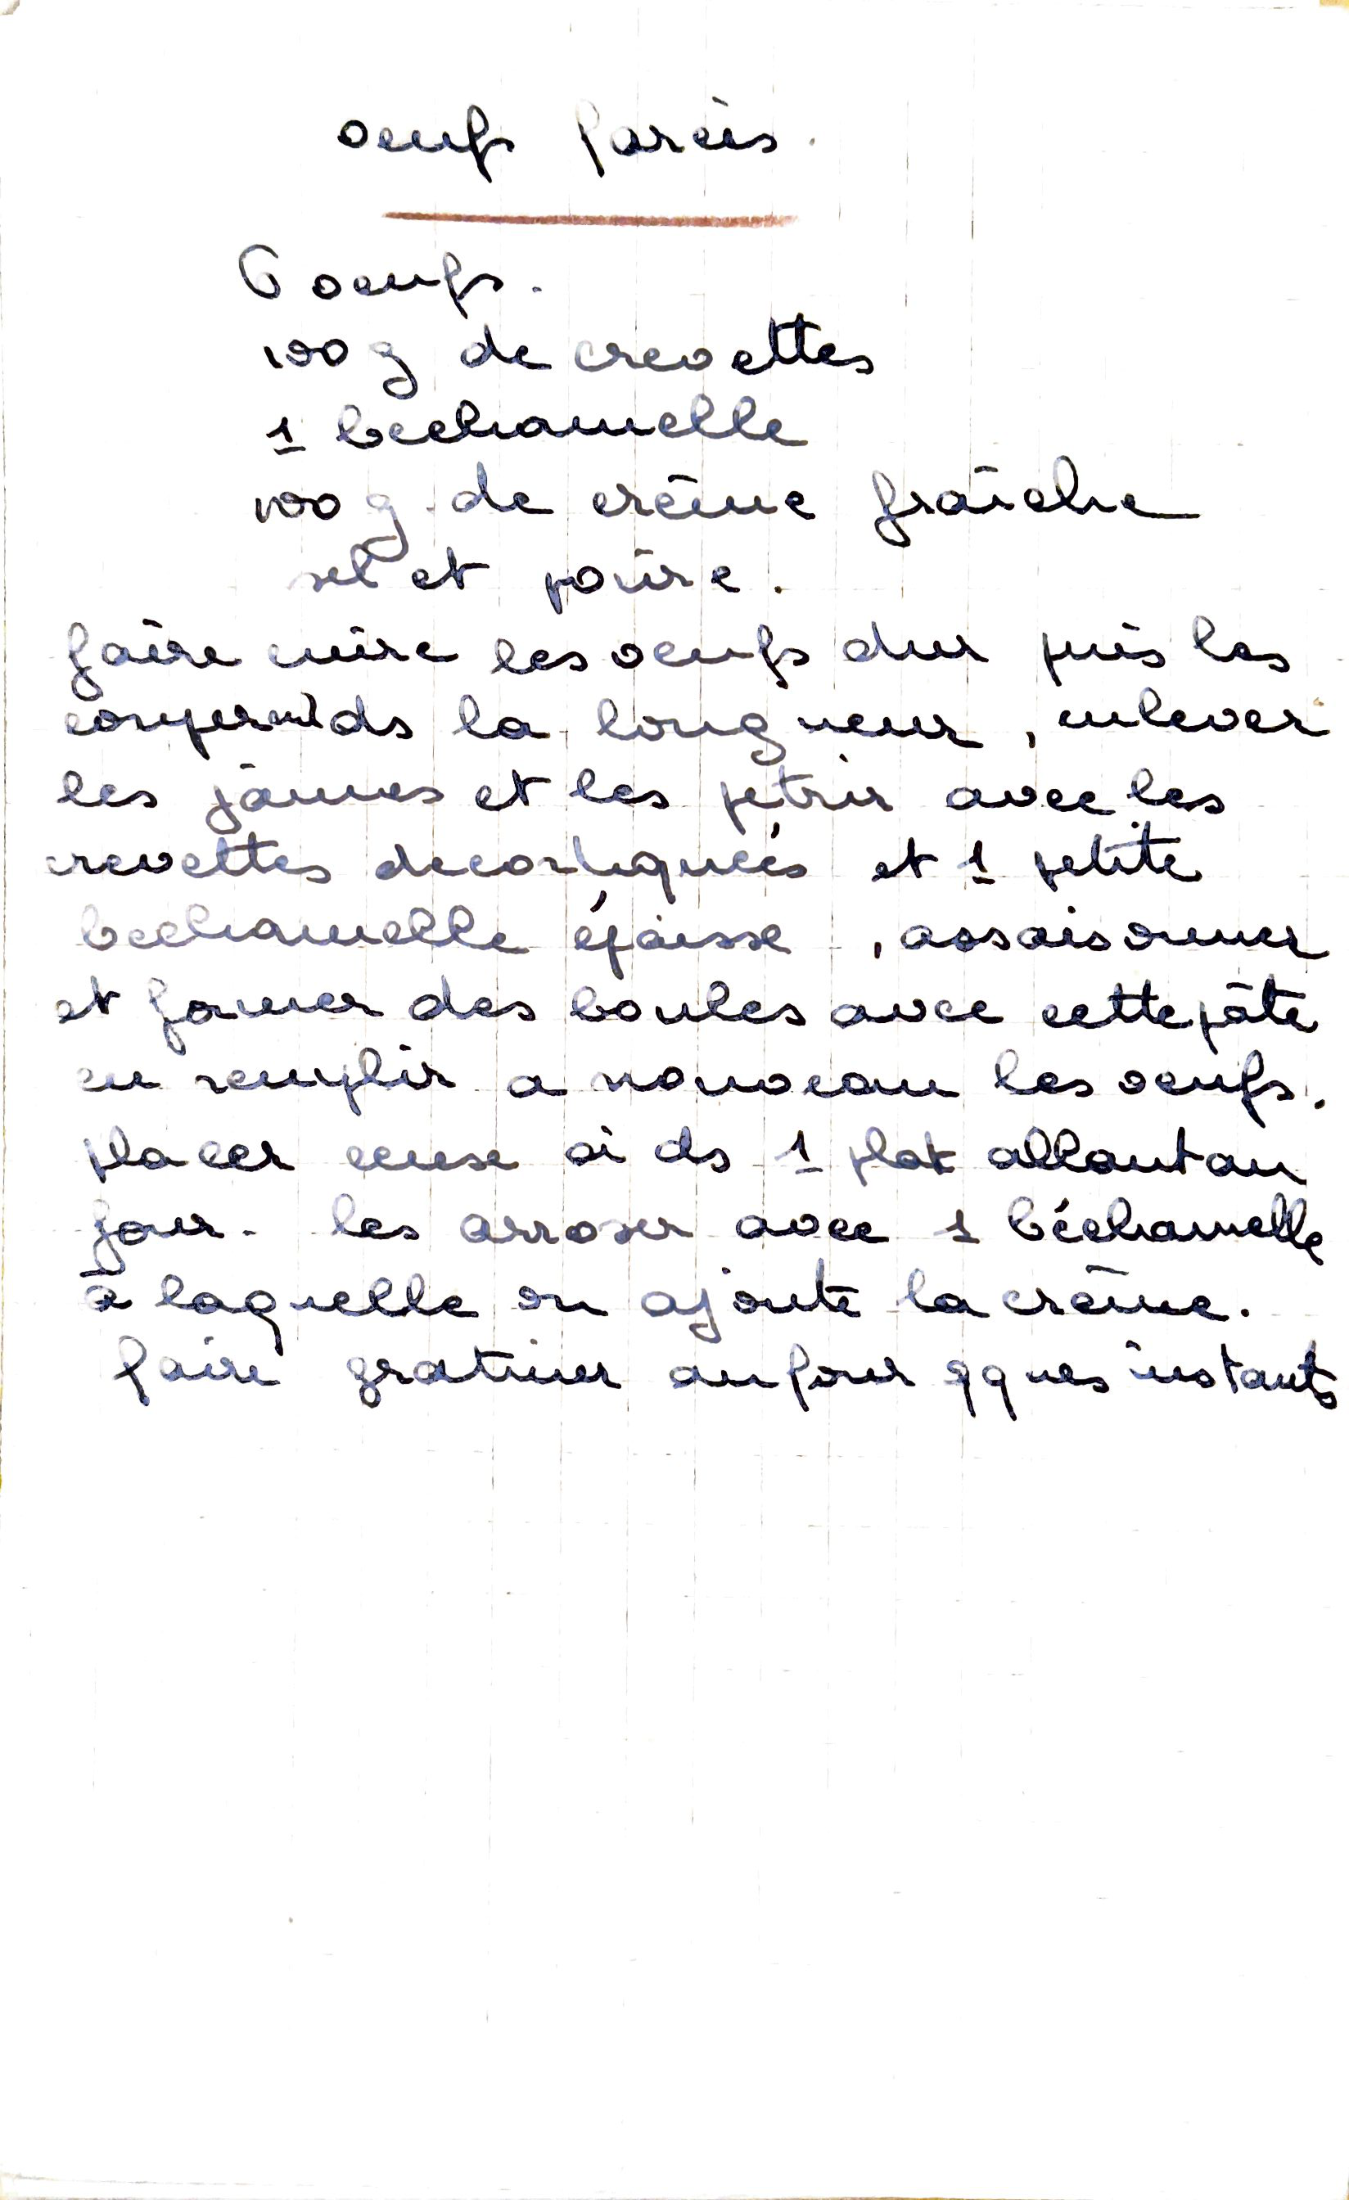 oeufs farcis.
6 oeufs.
100 g de crevettes
1 bechamelle
100 g de crème fraîche
sel et poivre.
faire cuire les oeufs dur puis les
couper ds la longueur, enlever
les jaunes et les pétrir avec les
crevettes decortiquées et 1 petite
bechamelle épaisse, assaisonner
et former des boules avec cette pâte
en remplir a nouveau les oeufs.
placer ds 1 plat allant au
four. les arroser avec 1 béchamelle
à laquelle on ajoute la crème.
faire gratiner au four qques instants